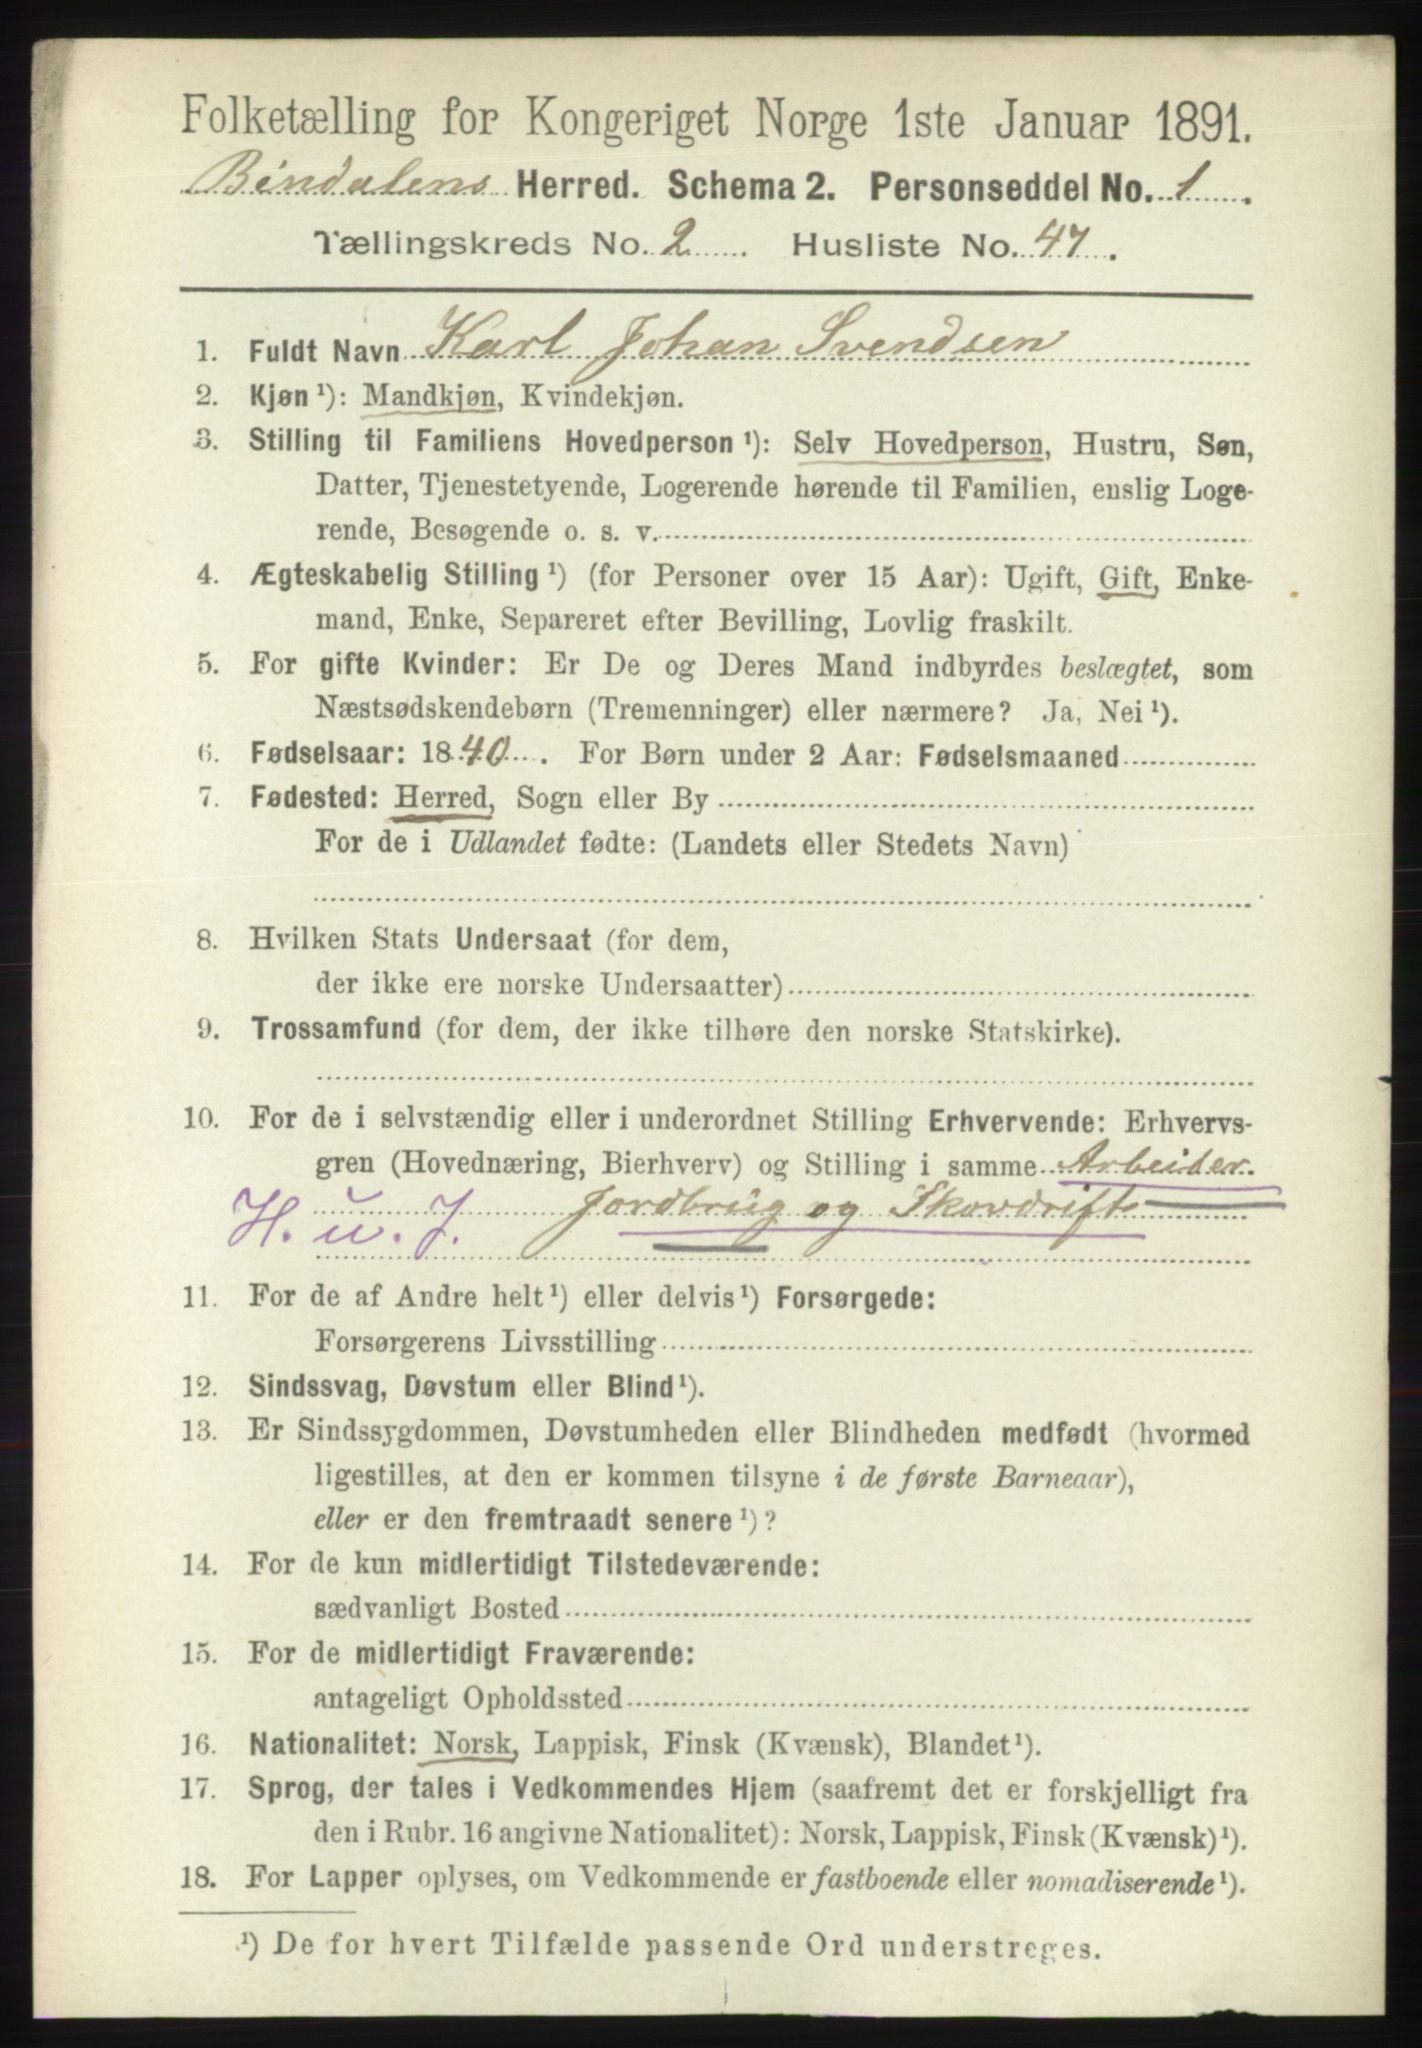 Folketælling for Kongeriget Norge 1ste Januar 1891.
Bindalens Herred. Schema 2. Personseddel No. 1.
Tællingskreds No. 2. Husliste No. 47.
1. Fuldt Navn Karl Johan Svendsen
2. Kjøn ¹): Mandkjøn, Kvindekjøn.
3. Stilling til Familiens Hovedperson ¹): Selv Hovedperson, Hustru, Søn,
Datter, Tjenestetyende, Logerende hørende til Familien, enslig Loge-
rende, Besøgende o. s. v.
4. Ægteskabelig Stilling ¹) (for Personer over 15 Aar): Ugift, Gift, Enke-
mand, Enke, Separeret efter Bevilling, Lovlig fraskilt.
5. For gifte Kvinder: Er De og Deres Mand indbyrdes beslægtet, som
Næstsødskendebørn (Tremenninger) eller nærmere? Ja, Nei ¹).
6. Fødselsaar: 1840. For Børn under 2 Aar: Fødselsmaaned
7. Fødested: Herred, Sogn eller By
For de i Udlandet fødte: (Landets eller Stedets Navn)
8. Hvilken Stats Undersaat (for dem,
der ikke ere norske Undersaatter)
9. Trossamfund (for dem, der ikke tilhøre den norske Statskirke).
10. For de i selvstændig eller i underordnet Stilling Erhvervende: Erhvervs-
gren (Hovednæring, Bierhverv) og Stilling i samme Arbeider.
H. u. J. Jordbrug og Skovdrift
11. For de af Andre helt ¹) eller delvis ¹) Forsørgede:
Forsørgerens Livsstilling
12. Sindssvag, Døvstum eller Blind ¹).
13. Er Sindssygdommen, Døvstumheden eller Blindheden medfødt (hvormed
ligestilles, at den er kommen tilsyne i de første Barneaar),
eller er den fremtraadt senere ¹)?
14. For de kun midlertidigt Tilstedeværende:
sædvanligt Bosted
15. For de midlertidigt Fraværende:
antageligt Opholdssted
16. Nationalitet: Norsk, Lappisk, Finsk (Kvænsk), Blandet ¹).
17. Sprog, der tales i Vedkommendes Hjem (saafremt det er forskjelligt fra
den i Rubr. 16 angivne Nationalitet): Norsk, Lappisk, Finsk (Kvænsk) ¹).
18. For Lapper oplyses, om Vedkommende er fastboende eller nomadiserende ¹).
¹) De for hvert Tilfælde passende Ord understreges.